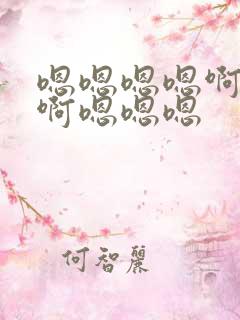 嗯嗯嗯嗯啊
啊嗯嗯嗯
何智麗